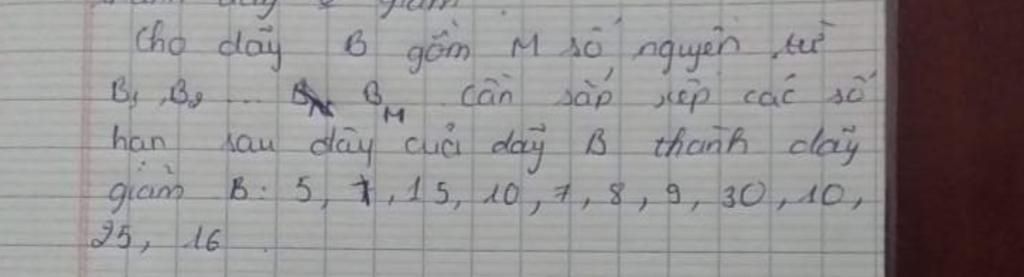 Cho dãy B gồm M số nguyên từ
B₁, B₂ ... B_M cần sắp xếp các số
hạn sau đây của dãy B thành dãy
giảm B: 5, 1, 15, 10, 7, 8, 9, 30, 10,
25, 16